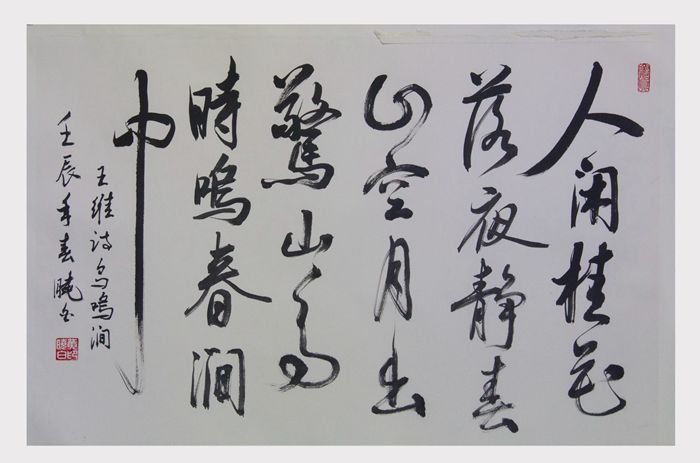 人闲桂花
落夜静春
山空月出
驚山鸟
時鸣春涧
中
王维诗鸟鸣涧
壬辰年春晓白